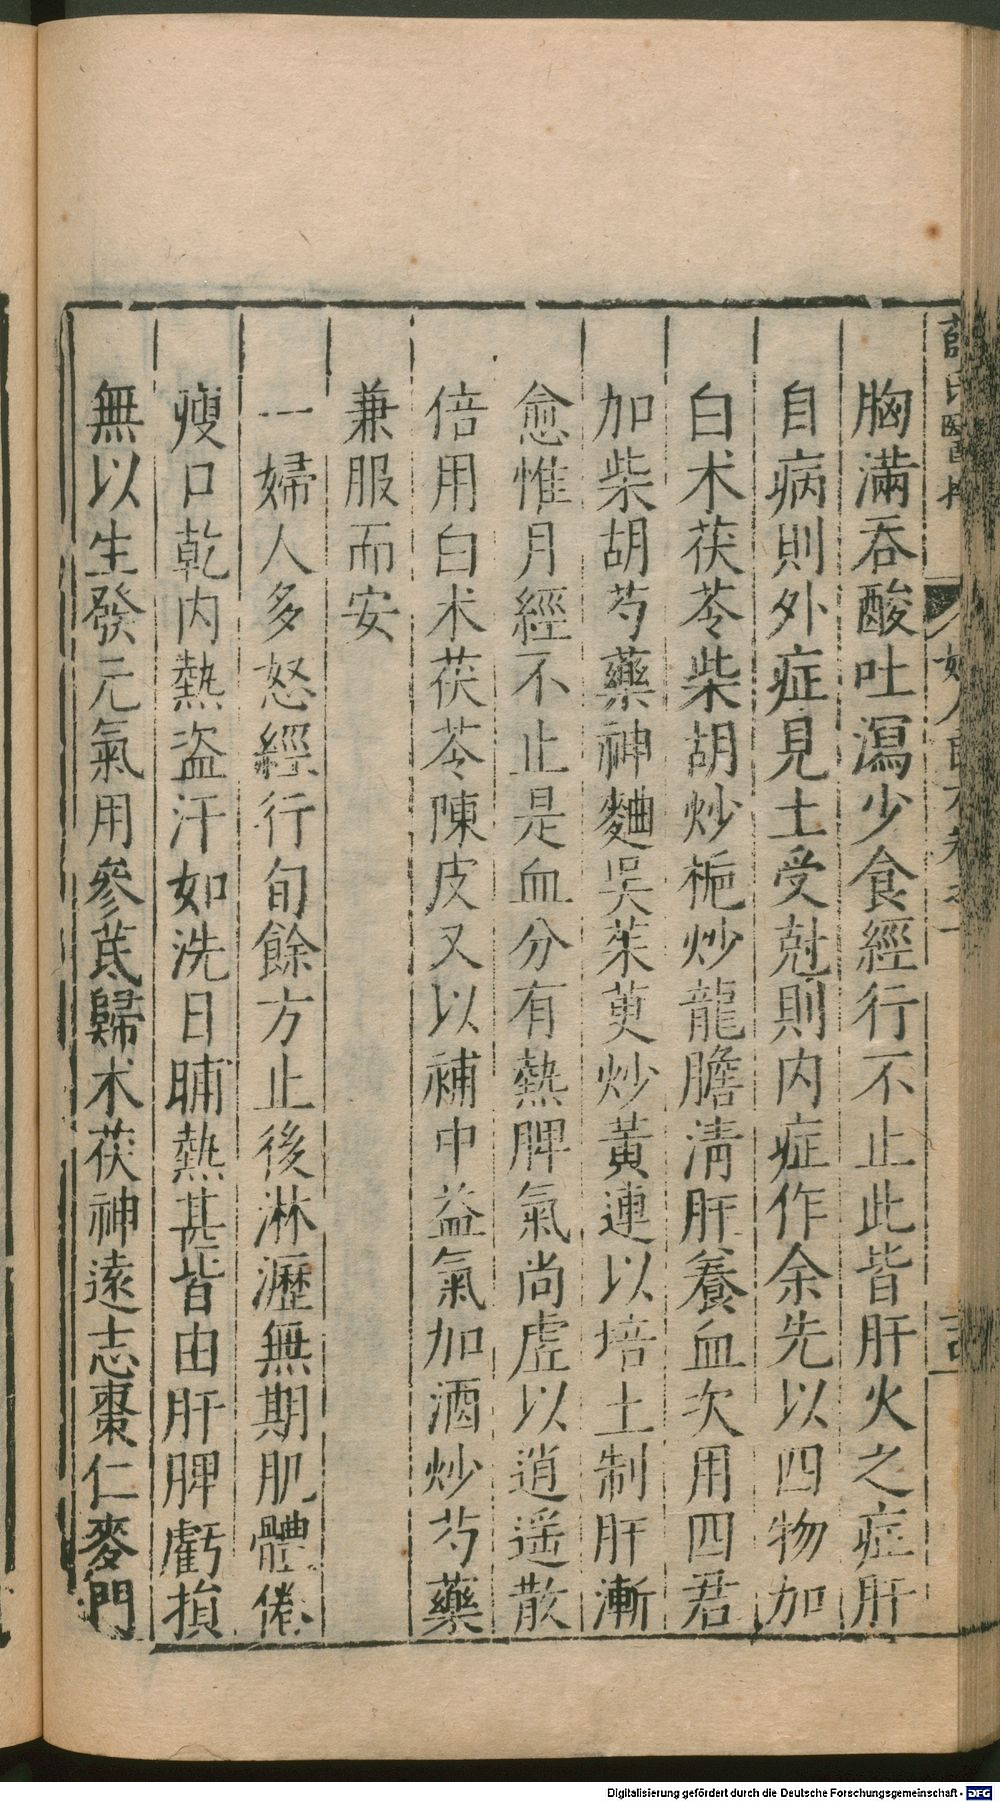 薛氏醫
胸滿吞酸吐瀉少食經行不止此皆肝火之症肝
自病則外症見土受尅則内症作余先以四物加
白术茯苓柴胡炒梔炒龍膽清肝養血次用四君
加柴胡芍藥神麯吳茱萸炒黃連以培土制肝漸
愈惟月經不止是血分有熱脾氣尚虛以逍遥散
倍用白术茯苓陳皮又以補中益氣加酒炒芍藥
兼服而安
一婦人多怒經行旬餘方止後淋瀝無期肌體倦
瘦口乾内熱盜汗如洗日晡熱甚皆由肝脾虧損
無以生發元氣用參芪歸术茯神遠志棗仁麥門
Digitalisierung gefördert durch die Deutsche Forschungsgemeinschaft - DFG